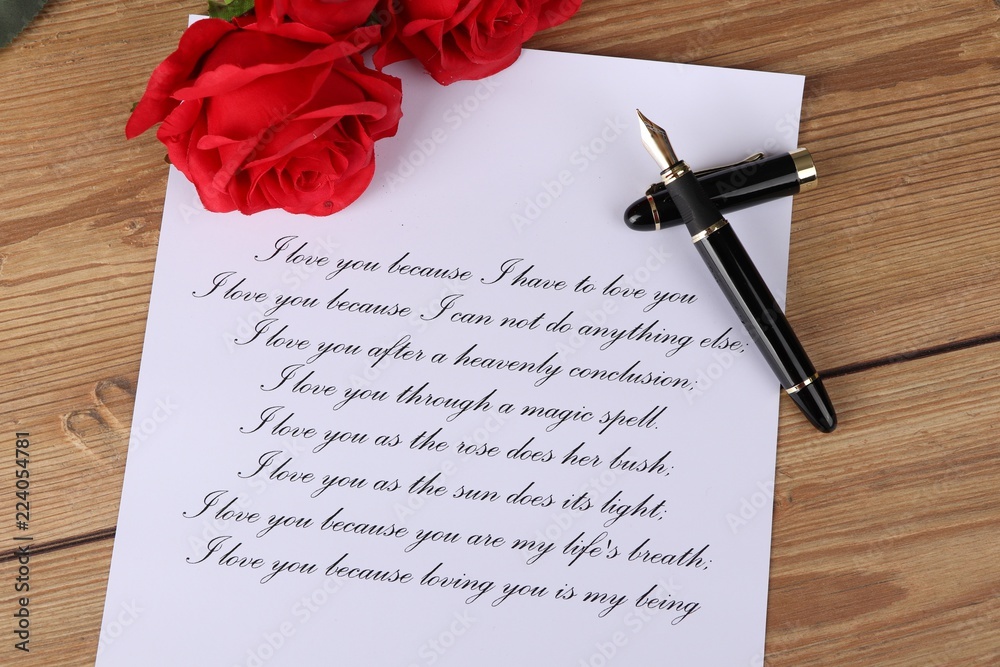 I love you because I have to love you
I love you because I can not do anything else;
I love you after a heavenly conclusion;
I love you through a magic spell.
I love you as the rose does her bush;
I love you as the sun does its light;
I love you because you are my life's breath;
I love you because loving you is my being
Adobe Stock | #224054781